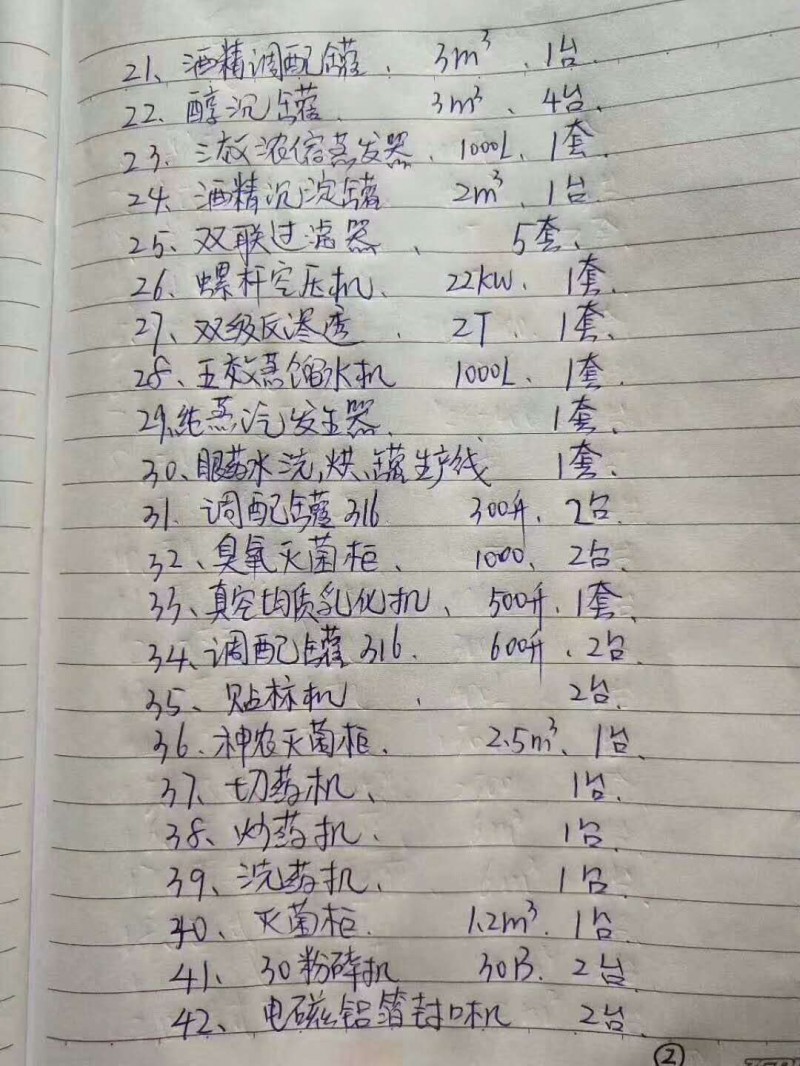 21、酒精调配罐、3m³、1台
22、醇沉罐、3m³、4台、
23、三效浓缩蒸发器、1000L、1套、
24、酒精沉淀罐 2m³、1台、
25、双联过滤器、5套、
26、螺杆空压机、22KW、1套、
27、双级反渗透、2T、1套、
28、五效蒸馏水机 1000L、1套、
29、纯蒸汽发生器、1套、
30、眼药水洗,烘、罐生产线 1套、
31、调配罐316 300升、2台、
32、臭氧灭菌柜、1000、2台、
33、真空均质乳化机、500升、1套、
34、调配罐316、600升、2台、
35、贴标机、2台、
36、神农灭菌柜、2.5m³、1台、
37、切药机、1台、
38、炒药机、1台、
39、洗药机、1台、
40、灭菌柜、1.2m³、1台、
41、30粉碎机 30B、2台
42、电磁铝箔封口机 2台、
②